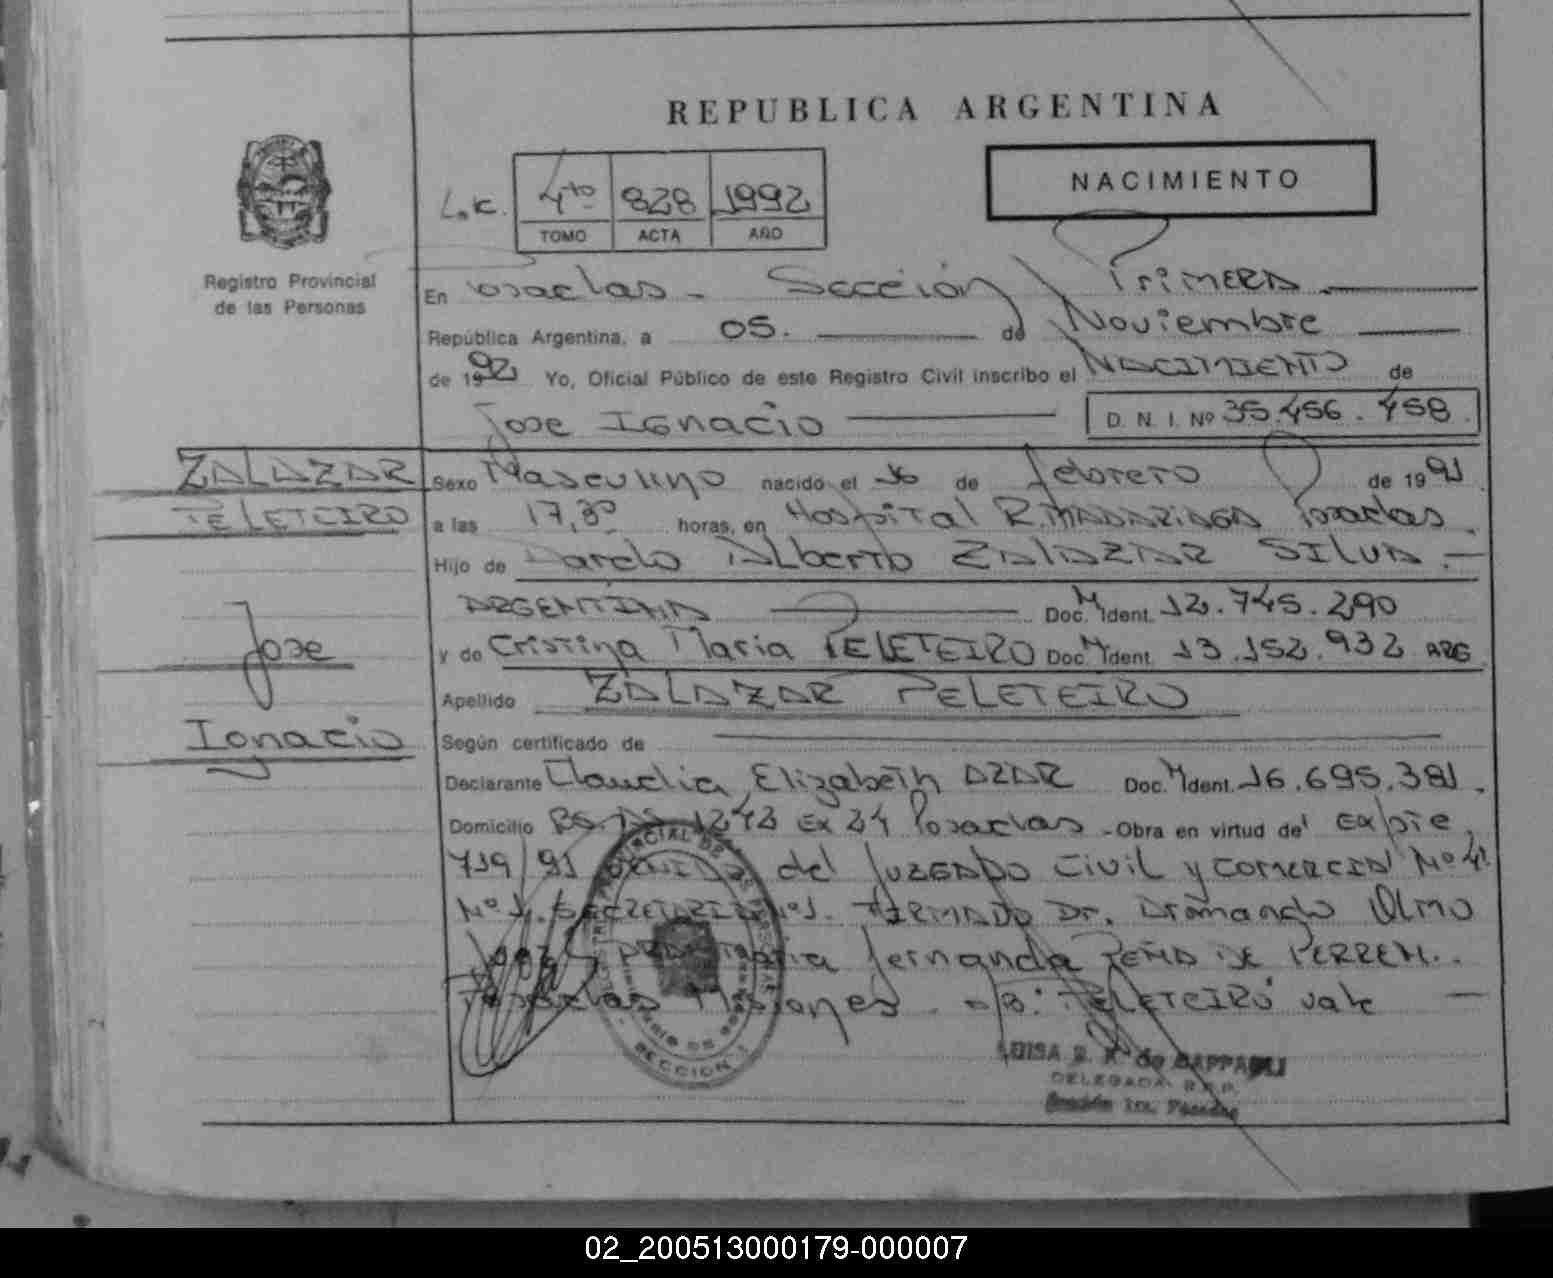 REPUBLICA ARGENTINA
NACIMIENTO
L.C. 4to 828 1992
TOMO ACTA AÑO
Registro Provincial
de las Personas
En Posadas - Sección Primera
República Argentina, a 05. de Noviembre
de 1992 Yo, Oficial Público de este Registro Civil inscribo el NACIMIENTO de
Jose IGnacio D. N. I. Nº 35.456.458
ZALAZAR
PELETEIRO
Jose
Ignacio
Sexo Masculino nacido el de febrero de 1991
a las 17,30 horas, en Hospital R. MADARIAGA Posadas
Hijo de Dardo ALberto ZALAZAR SILVA.
ARGENTINA Doc. M Ident. 12.745.290
y de Cristina Maria PELETEIRO Doc. M Ident. 13.152.932 ARG
Apellido ZALAZAR PELETEIRO
Según certificado de
Declarante Claudia Elizabeth AZAR Doc. M Ident. 16.695.381.
Domicilio Bs. As 1272 Posadas - Obra en virtud de Expte
719/91 del JUZGADO Civil y COMERCIAL Nº 4
Nº 1. SECRETARIA Nº 1. FIRMADO Dr. Armando Olmo
Juez Maria Fernanda PEÑA DE PERREM..
Posadas Misiones. PELETEIRO vale
SECCION 1
LUISA de CAPPAELLI
DELEGADA R.P.P.
Sección 1ra. Posadas
02_200513000179-000007